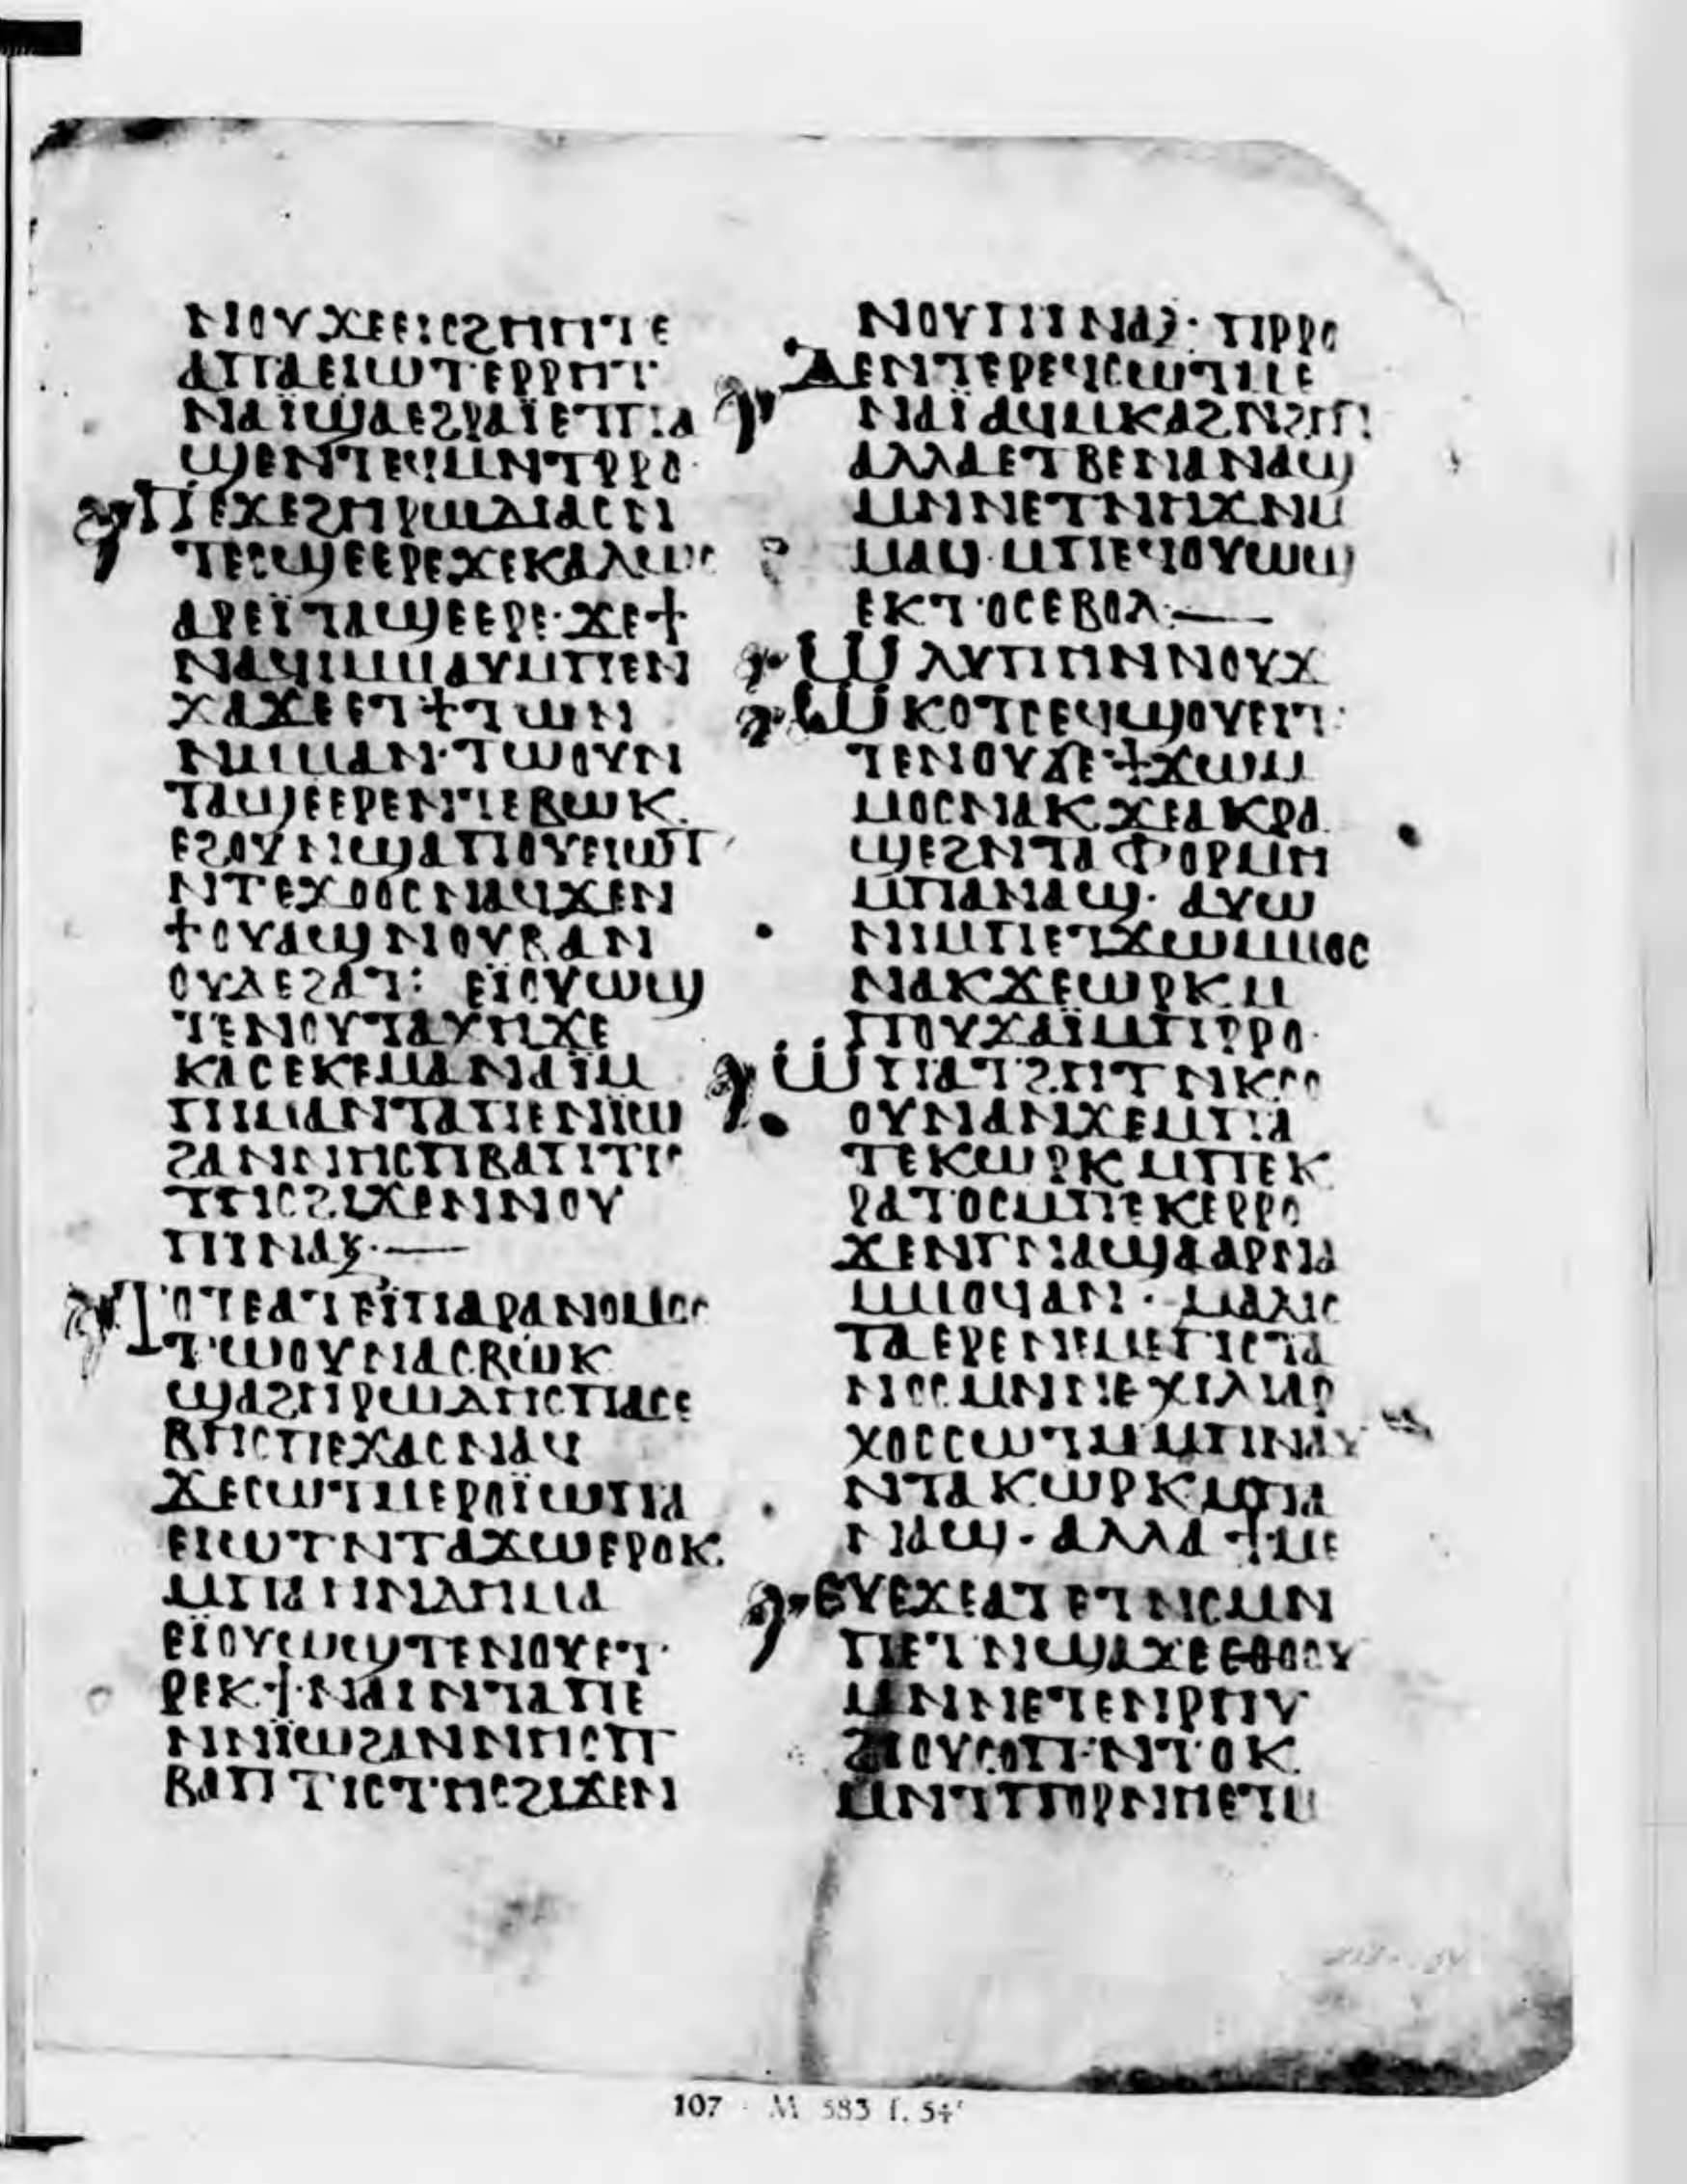 ⲚⲞⲨϪⲈⲈⲒⲤϨⲎⲎⲦⲈ
ⲀⲠⲀⲈⲒⲰⲦⲈⲢⲢⲎⲦ
ⲚⲀⲒ̈ϢⲀⲈϨⲢⲀⲒ̈ⲈⲦⲠⲀ
ϢⲈⲚⲦⲈϤⲘⲚⲦⲢⲢⲞ
ⲠⲈϪⲈϨⲎⲢⲰⲆⲒⲀⲤⲚ
ⲦⲈⲤϢⲈⲈⲢⲈϪⲈⲔⲀⲖⲰⲤ
ⲀⲢⲈⲒ̈ⲦⲀϢⲈⲈⲢⲈ·ϪⲈϮ
ⲚⲀϤⲘⲘⲀⲨⲘⲠⲈⲚ
ϪⲀϪⲈⲈⲦϮⲦⲰⲚ
ⲚⲘⲘⲀⲚ·ⲦⲰⲞⲨⲚ
ⲦⲀϢⲈⲈⲢⲈⲚⲦⲈⲂⲰⲔ
ⲈϨⲞⲨⲚϢⲀⲠⲞⲨⲈⲒⲰⲦ
ⲚⲦⲈϪⲞⲞⲤⲚⲀϤϪⲈⲚ
ϮⲞⲨⲀϢⲚⲞⲨⲂⲀⲚ
ⲞⲨⲆⲈϨⲀⲦ: ⲈⲒ̈ⲞⲨⲰϢ
ⲦⲈⲚⲞⲨⲦⲀⲬⲎϪⲈ
ⲔⲀⲤⲈⲔⲈⲘⲀⲚⲀⲒ̈Ⲙ
ⲠⲘⲀⲚⲦⲀⲠⲈⲚⲒ̈Ⲱ
ϨⲀⲚⲚⲎⲤⲠⲂⲀⲠⲦⲒⲤ
ⲦⲎⲤϨⲒϪⲈⲚⲚⲞⲨ
ⲠⲒⲚⲀⲜ·—
ⲦⲞⲦⲈⲀⲦⲈⲒ̈ⲠⲀⲢⲀⲚⲞⲘⲞⲤ
ⲦⲰⲞⲨⲚⲀⲤⲂⲰⲔ
ϢⲀϨⲎⲢⲰⲆⲎⲤⲠⲀⲤⲈ
ⲂⲎⲤⲠⲈϪⲀⲤⲚⲀϤ
ϪⲈⲤⲰⲦⲘⲈⲢⲞⲒ̈ⲰⲠⲀ
ⲈⲒⲰⲦⲚⲦⲀϪⲰⲈⲢⲞⲔ
ⲘⲠⲀⲎⲚⲆⲎⲘⲀ
ⲈⲒ̈ⲞⲨⲰϢⲦⲈⲚⲞⲨⲈⲦ
ⲢⲈⲔϮⲚⲀⲒⲚⲦⲀⲠⲈ
ⲚⲚⲒ̈ⲰϨⲀⲚⲚⲎⲤⲠ
ⲂⲀⲠⲦⲒⲤⲦⲎⲤϨⲒϪⲈⲚ
ⲚⲞⲨⲠⲒⲚⲀⲜ· ⲠⲢⲢⲞ
ⲆⲈⲚⲦⲈⲢⲈϤⲤⲰⲦⲘⲈ
ⲚⲀⲒ̈ⲀϤⲘⲔⲀϨⲚϨⲎⲦ
ⲀⲖⲖⲀⲈⲦⲂⲈⲚⲀⲚⲀϢ
ⲘⲚⲚⲈⲦⲚⲎϪⲚⲘ
ⲘⲀϤ·ⲘⲠⲈϤⲞⲨⲰϢ
ⲈⲔⲦⲞⲤⲈⲂⲞⲖ·—
ⲰⲖⲨⲠⲎⲚⲚⲞⲨϪ
ⲰⲔⲞⲦⲤⲈϤϢⲞⲨⲈⲒⲦ·
ⲦⲈⲚⲞⲨϪⲈϮϪⲰⲘ
ⲘⲞⲤⲚⲀⲔϪⲈⲀⲔⲢⲀ
ϢⲈϨⲚⲦⲀⲪⲞⲢⲘⲎ
ⲘⲠⲀⲚⲀϢ· ⲀⲨⲰ
ⲚⲒⲘⲠⲈⲦϪⲰⲘⲘⲞⲤ
ⲚⲀⲔϪⲈⲰⲢⲔⲘ
ⲠⲞⲨϪⲀⲒ̈ⲘⲠⲢⲢⲞ·
ⲰⲠⲀⲦϨⲎⲦⲚⲔⲤⲞ
ⲞⲨⲚⲀⲚϪⲈⲘⲠⲀ
ⲦⲈⲔⲰⲢⲔⲘⲠⲈⲔ
ⲢⲀⲦⲞⲤⲘⲠⲈⲔⲈⲢⲢⲞ
ϪⲈⲚⲄⲚⲀϢⲀⲀⲢⲚⲀ
ⲘⲘⲞϤⲀⲚ·ⲘⲀⲖⲒⲤ
ⲦⲀⲈⲢⲈⲚⲈⲘⲈⲄⲒⲤⲦⲀ
ⲚⲞⲤⲘⲚⲚⲈⲬⲒⲖⲒⲀⲢ
ⲬⲞⲤⲤⲰⲦⲘⲘⲠⲚⲀⲨ
ⲚⲦⲀⲔⲰⲢⲔⲘⲠⲀ
ⲚⲀϢ·ⲀⲖⲖⲀϮⲘⲈ
ⲈⲨⲈϪⲈⲀⲦⲈⲦⲚⲤⲘⲚ
ⲠⲈⲦⲚϢⲀϪⲈⲈⲐⲞⲞⲨ
ⲘⲚⲚⲈⲦⲈⲚⲢⲎⲨ
ϨⲒⲞⲨⲤⲞⲠ·ⲚⲦⲞⲔ
ⲘⲚⲦⲠⲞⲢⲚⲎⲈⲦⲘ
107 · M 583 f. 54ᵛ